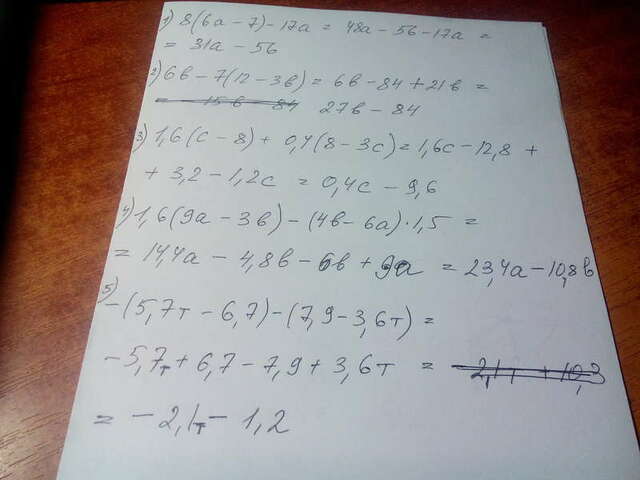 1) 8(6а - 7) - 17а = 48а - 56 - 17а =
= 31а - 56
2) 6в - 7(12 - 3в) = 6в - 84 + 21в =
= 15в - 84 27в - 84
3) 1,6(с - 8) + 0,4(8 - 3с) = 1,6с - 12,8 +
+ 3,2 - 1,2с = 0,4с - 9,6
4) 1,6(9а - 3в) - (4в - 6а) · 1,5 =
= 14,4а - 4,8в - 6в + 9а = 23,4а - 10,8в
5)
-(5,7т - 6,7) - (7,9 - 3,6т) =
-5,7т + 6,7 - 7,9 + 3,6т =
= -2,1т - 1,2